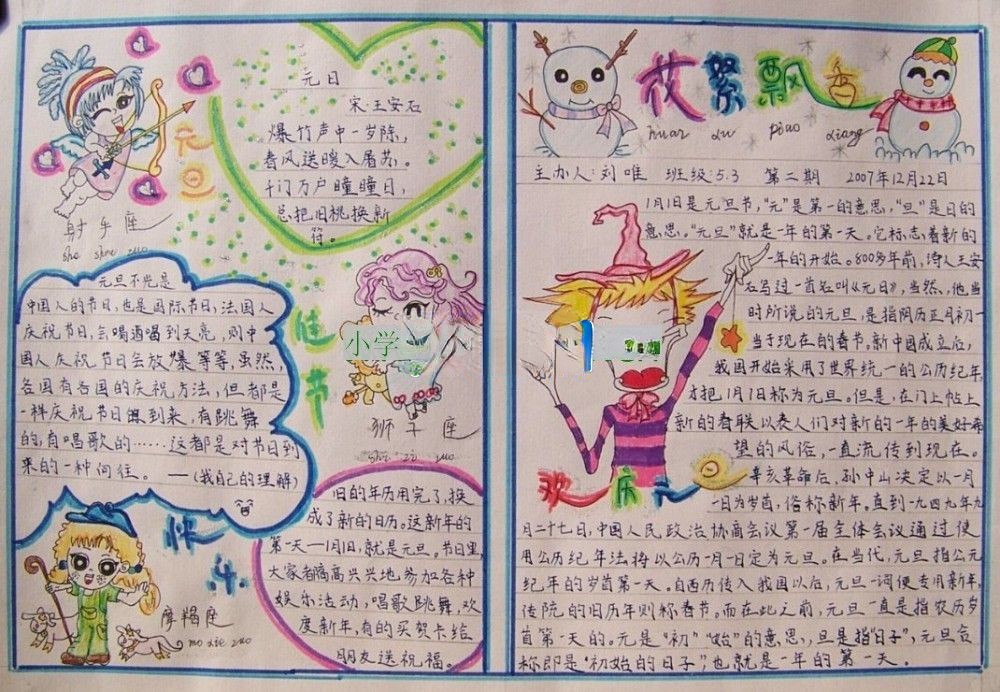 元旦
射手座
she shou zuo
元日
宋 王安石
爆竹声中一岁除，
春风送暖入屠苏。
千门万户曈曈日，
总把旧桃换新
符。
元旦不光是
中国人的节日，也是国际节日，法国人
庆祝节日，会喝酒喝到天亮，则中
国人庆祝节日会放爆等等，虽然
各国有各国的庆祝方法，但都是
一样庆祝节日的到来，有跳舞
的，有唱歌的……这都是对节日到
来的一种向往。 ——（我自己的理解）
佳节
小学
狮子座
shi zi zuo
快乐
摩羯座
mo xie zuo
旧的年历用完了，换
成了新的日历。这新年的
第一天—1月1日，就是元旦。节日里，
大家都高高兴兴地参加各种
娱乐活动，唱歌跳舞，欢
度新年，有的买贺卡给
朋友送祝福。
花絮飘香
huar xu piao xiang
主办人：刘唯 班级：5.3 第二期 2007年12月22日
1月1日是元旦节，“元”是第一的意思，“旦”是日的
意思。“元旦”就是一年的第一天。它标志着新的
一年的开始。800多年前，诗人王安
石写过一首名叫《元日》，当然，他当
时所说的元旦，是指阴历正月初一
当于现在的春节。新中国成立后，
我国开始采用了世界统一的公历纪年
才把1月1日称为元旦。但是，在门上帖上
新的春联以表人们对新的一年的美好希
望的风俗，一直流传到现在。
欢庆元旦
辛亥革命后，孙中山决定以一月
一日为岁首，俗称新年。直到一九四九年九
月二十七日，中国人民政治协商会议第一届全体会议通过使
用公历纪年法，将以公历一月一日定为元旦。在当代，元旦指公元
纪年的岁首第一天。自西历传入我国以后，元旦一词便专用新年，
传统的旧历年则称春节。而在此之前，元旦一直是指农历岁
首第一天的。元是“初”“始”的意思，旦是指“日子”，元旦合
称即是“初始的日子”，也就是一年的第一天。